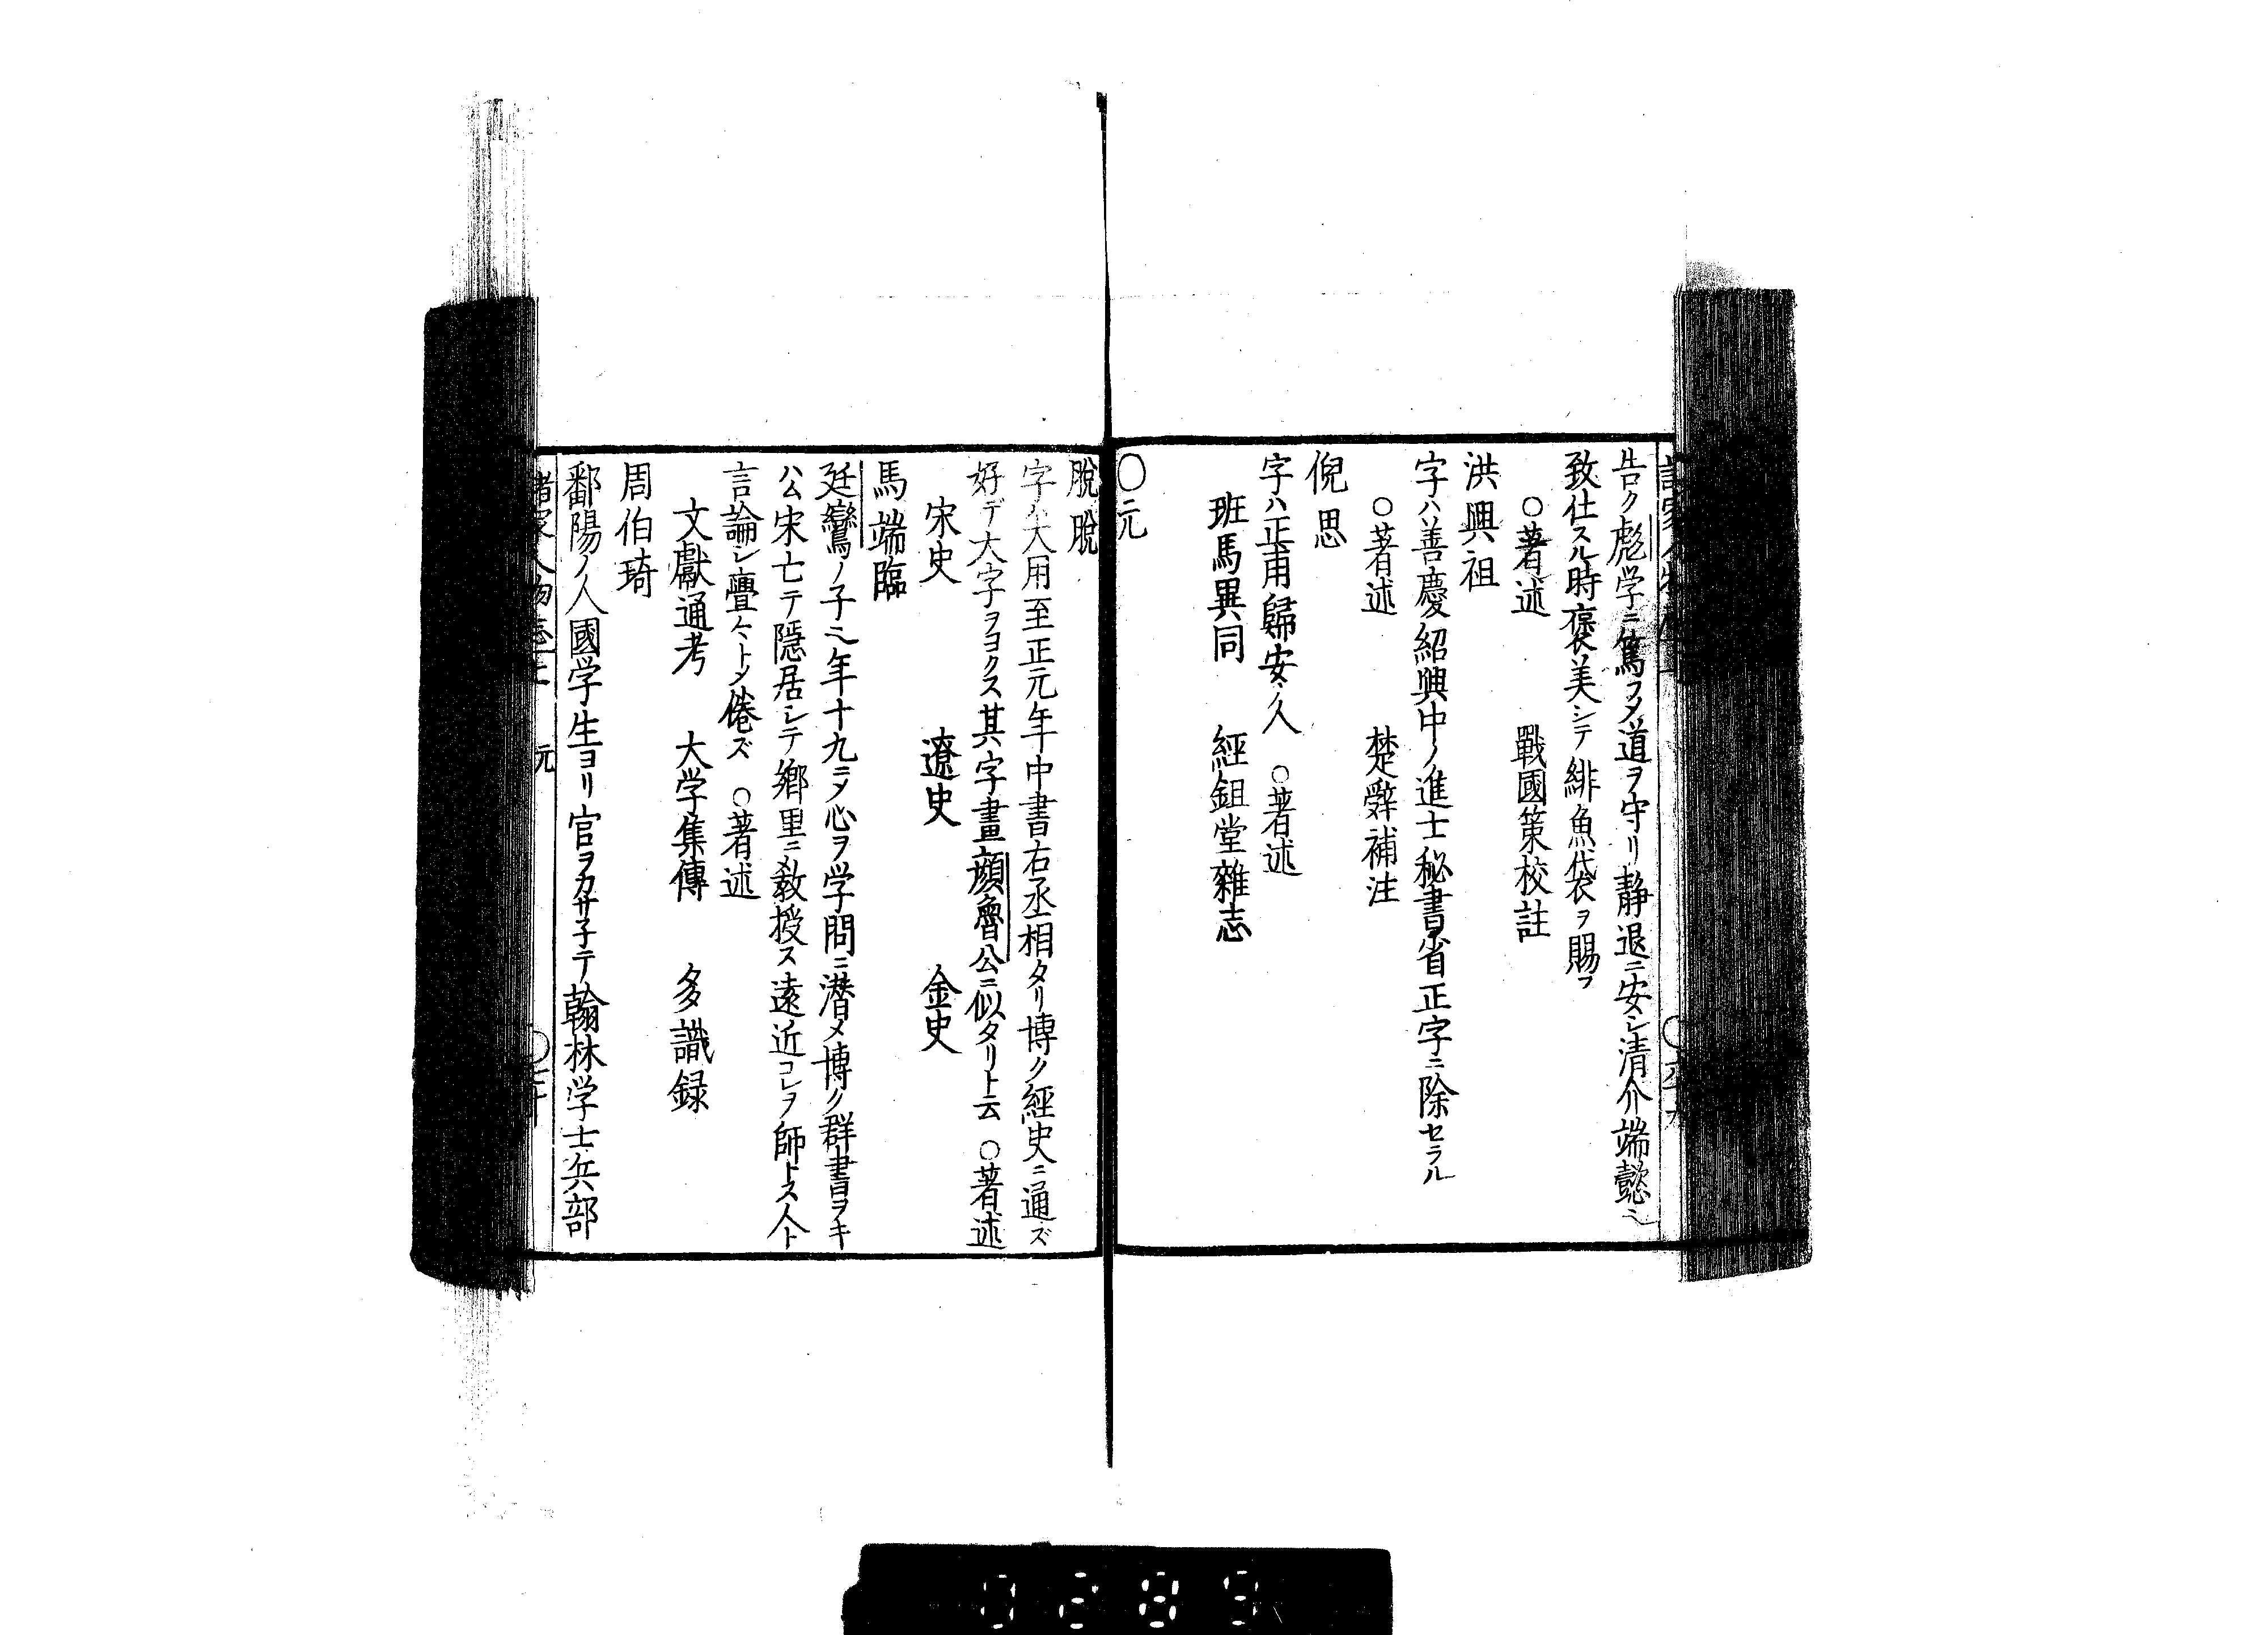 告ク彪学ニ篤フメ道ヲ守リ静退ニ安シ清介端懿ニ
致仕スル時褒美シテ緋魚袋ヲ賜フ
○著述　戰國策校註
洪興祖
字ハ善慶紹興中ノ進士秘書省正字ニ除セラル
○著述　楚辭補注
倪思
字ハ正甫歸安ノ人　○著述
班馬異同　經鉏堂雜志
○元
脫脫
字ハ大用至正元年中書右丞相タリ博ク經史ニ通ズ
好デ大字ヲヨクス其字畫顔魯公ニ似タリト云　○著述
宋史　遼史　金史
馬端臨
廷鸞ノ子ニ年十九ニメ心ヲ学問ニ潛メ博ク群書ヲキ
公宋亡テ隱居シテ鄉里ニ教授ス遠近コレヲ師トス人ト
言論シ亹々トメ倦ズ　○著述
文獻通考　大学集傳　多識録
周伯琦
鄱陽ノ人國学生ヨリ官ヲカサ子テ翰林学士兵部
諸家人物志　元　○七十